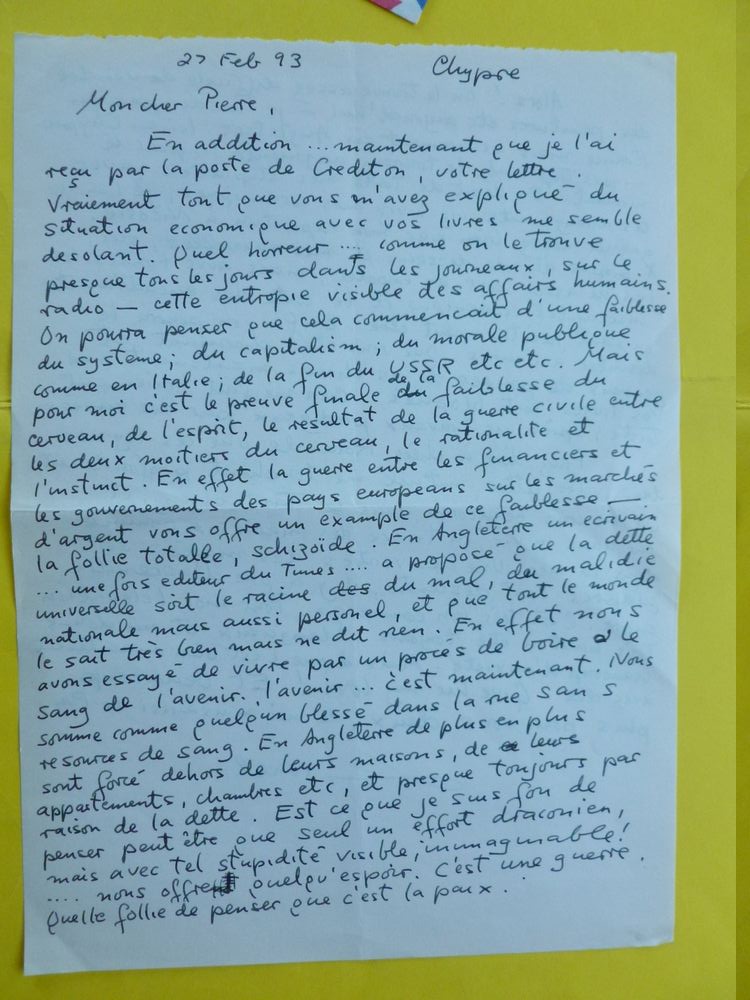 27 Feb 93 Chypre
Mon cher Pierre,
En addition ... maintenant que je l'ai
reçu par la poste de Crediton, votre lettre.
Vraiement tout que vous m'avez expliqué du
situation economique avec vos livres me semble
desolant. Quel horreur .... comme on le trouve
presque tous les jours dans les journeaux, sur le
radio — cette entropie visible des affairs humains.
On pourra penser que cela commencait d'une faiblesse
du systeme; du capitalism; du morale publique
comme en Italie; de la fin du USSR etc etc. Mais
pour moi c'est le preuve finale de la faiblesse du
cerveau, de l'esprit, le resultat de la guerre civile entre
les deux moitiers du cerveau, le rationalité et
l'instinct. En effet la guerre entre les financiers et
les gouvernements des pays europeans sur les marchés
d'argent vous offre un example de ce faiblesse —
la follie totalle, schizoïde. En Angleterre un ecrivain
... une fois editeur du Times .... a proposé que la dette
universelle soit le racine du mal, du malidie
nationale mais aussi personel, et que tout le monde
le sait très bien mais ne dit rien. En effet nous
avons essayé de vivre par un procés de boire le
sang de l'avenir. l'avenir ... c'est maintenant. Nous
somme comme quelqun blessé dans la rue sans
resources de sang. En Angleterre de plus en plus
sont forcé dehors de leurs maisons, de leurs
appartements, chambres etc, et presque toujours par
raison de la dette. Est ce que je suis fou de
penser peut être que seul un effort draconien,
mais avec tel stupidité visible, immaginable!
.... nous offre quelqu'espoir. C'est une guerre.
Quelle follie de penser que c'est la paix.